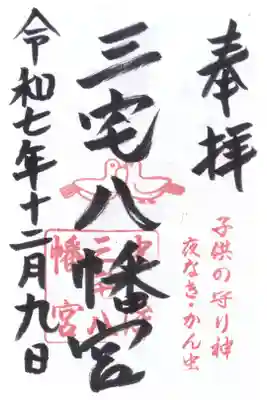 奉拝
子供の守り神
夜なき・かん虫
三宅八幡宮
令和七年十二月九日